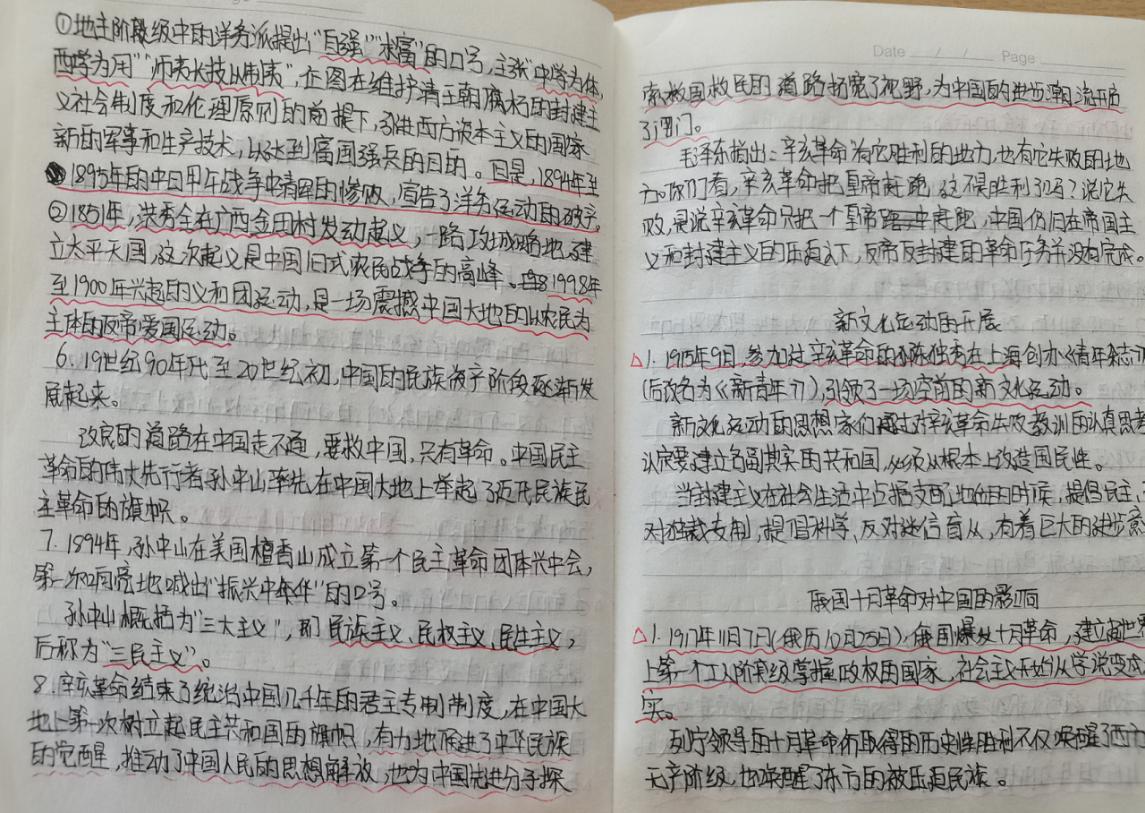 ①地主阶级中的洋务派提出"自强""求富"的口号,主张"中学为体,
西学为用""师夷长技以制夷",企图在维护清王朝腐朽的封建主
义社会制度和伦理原则的前提下,引进西方资本主义的国家
新的军事和生产技术,以达到富国强兵的目的。但是,1894年至
1895年的中日甲午战争中清军的惨败,宣告了洋务运动的破产。
②1851年,洪秀全在广西金田村发动起义,一路攻城略地,建
立太平天国,这次起义是中国旧式农民战争的高峰。1998年
至1900年兴起的义和团运动,是一场震撼中国大地的以农民为
主体的反帝爱国运动。
6. 19世纪90年代至20世纪初,中国的民族资产阶段逐渐发
展起来。
改良的道路在中国走不通,要救中国,只有革命。中国民主
革命的伟大先行者孙中山率先在中国大地上举起了近代民族民
主革命的旗帜。
7. 1894年,孙中山在美国檀香山成立第一个民主革命团体兴中会,
第一次响亮地喊出"振兴中华"的口号。
孙中山概括为"三大主义",即民族主义、民权主义、民生主义,
后称为"三民主义"。
8. 辛亥革命结束了统治中国几千年的君主专制制度,在中国大
地上第一次树立起民主共和国的旗帜,有力地促进了中华民族
的觉醒,推动了中国人民的思想解放,也为中国先进分子探
Date / / Page
索救国救民的道路拓宽了视野,为中国的进步潮流开启
了闸门。
毛泽东指出:辛亥革命有它胜利的地方,也有它失败的地
方。你们看,辛亥革命把皇帝赶跑,这不是胜利了吗?说它失
败,是说辛亥革命只把一个皇帝赶跑,中国仍旧在帝国主
义和封建主义的压迫以下,反帝反封建的革命任务并没有完成。
新文化运动的开展
△1. 1915年9月,参加过辛亥革命的陈独秀在上海创办《青年杂志》
(后改名为《新青年》),引领了一场空前的新文化运动。
新文化运动的思想家们通过对辛亥革命失败教训的认真思考
认定要建立名副其实的共和国,必须从根本上改造国民性。
当封建主义在社会生活中占据支配地位的时候,提倡民主,
对独裁专制,提倡科学、反对迷信盲从,有着巨大的进步意
俄国十月革命对中国的影响
△1. 1917年11月7日(俄历10月25日),俄国爆发十月革命,建立起世界
上第一个工人阶级掌握政权的国家,社会主义开始从学说变成
实。
列宁领导的十月革命所取得的历史性胜利不仅唤醒了西方
无产阶级,也唤醒了东方的被压迫民族。